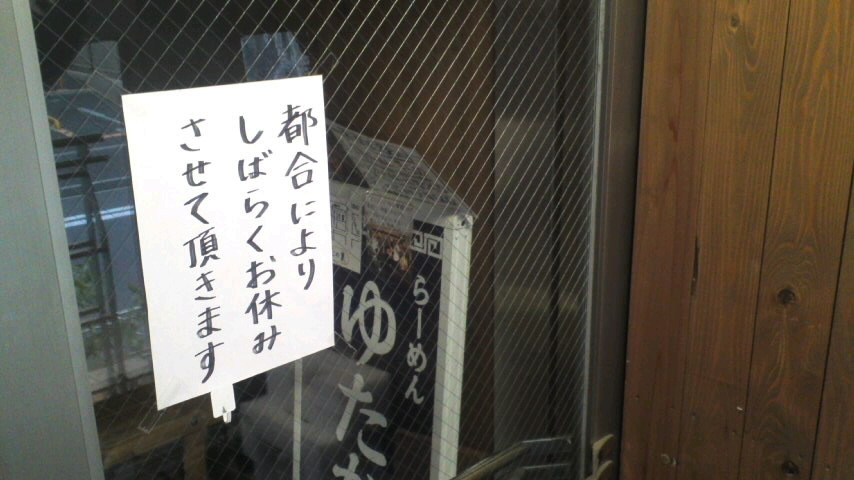 都合により
しばらくお休み
させて頂きます
らーめん
ゆた